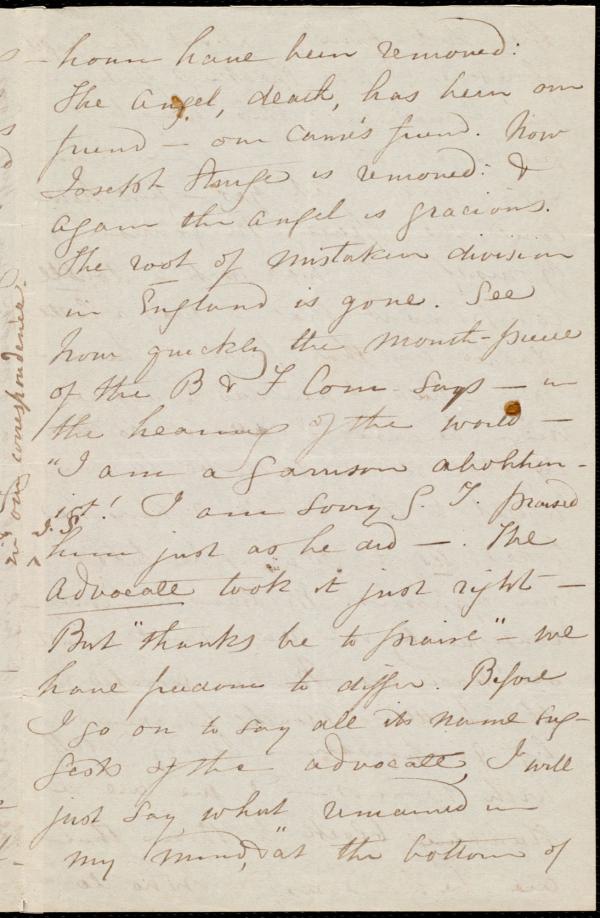 have been removed:
The Angel, death, has been our
friend — our Cause's friend. Now
Joseph Sturge is removed: &
again the angel is gracious.
The root of mistaken division
in England is gone. See
how quickly the mouth-piece
of the B & F Com- says — in
the hearing of the world —
"I am a Garrison abolition-
ist! I am sorry G. T. praised
J.S.
^ him just as he did — . The
Advocate took it just right —
But "thanks be to praise" — we
have freedom to differ. Before
I go on to say all its name sug-
gests of the advocate, I will
just say what remained in
my mind, "at the bottom of
in our correspondence.